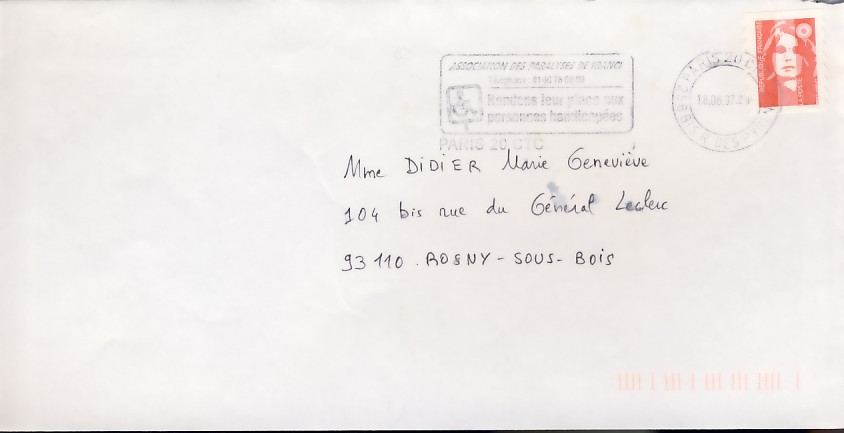 ASSOCIATION DES PARALYSES DE FRANCE
Rendons leur place aux
personnes handicapées
PARIS 20 CTC
PARIS 20 CTC
18.06.97
REPUBLIQUE FRANÇAISE
LA POSTE
Mme DIDIER Marie Geneviève
104 bis rue du Général Leclerc
93110. ROSNY-SOUS-BOIS